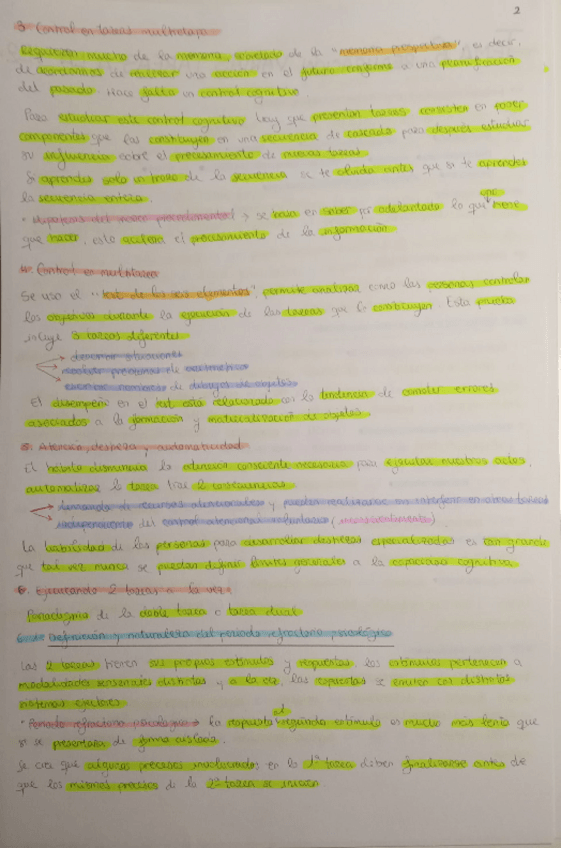 2
3. Control en tareas multietapa
Requieren mucho de la memoria, sobretodo de la "memoria prospectiva", es decir,
de acordarnos de realizar una acción en el futuro conforme a una planificación
del pasado. Hace falta un control cognitivo.
Para estudiar este control cognitivo hay que presentar tareas consisten en poner
componentes que las constituyen en una secuencia de cascada para después estudiar
su influencia sobre el procesamiento de nuevas tareas.
Si aprendes solo un "trozo" de la secuencia se te olvida antes que si te aprendes
la secuencia entera.
se basa en saber por adelantado lo que tiene
que hacer, esto acelera el procesamiento de la información.
4. Control en multitarea
Se usa el "test de los seis elementos", permite analizar como las personas controlan
los objetivos durante la ejecución de las tareas que lo constituyen. Esta prueba
incluye 3 tareas diferentes
→ describir situaciones
→ resolver problemas de aritmética
→ escribir nombres de dibujos de objetos
El desempeño en el test está relacionado con la tendencia de cometer errores
asociados a la formación y materialización de objetos.
5. Atención, destreza y automaticidad
El hábito disminuye la atención consciente necesaria para ejecutar nuestros actos,
automatizar la tarea trae 2 consecuencias
→ demanda de recursos atencionales y pueden realizarse sin interferir en otras tareas
→ independiente del control atencional voluntario (inconscientemente)
La habilidad de las personas para desarrollar destrezas especializadas es tan grande
que tal vez nunca se puedan definir límites generales a la capacidad cognitiva.
6. Ejecutando 2 tareas a la vez
Paradigma de la doble tarea o tarea dual
Definición y naturaleza del periodo refractario psicológico
Las 2 tareas tienen sus propios estímulos y respuestas, los estímulos pertenecen a
modalidades sensoriales distintas y a la vez, las respuestas se emiten con distintos
sistemas efectores.
• Periodo refractario psicológico → la respuesta al segundo estímulo es mucho más lenta que
si se presentara de forma aislada.
Se cree que algunos procesos involucrados en la 1ª tarea deben finalizarse antes de
que los mismos procesos de la 2ª tarea se inicien